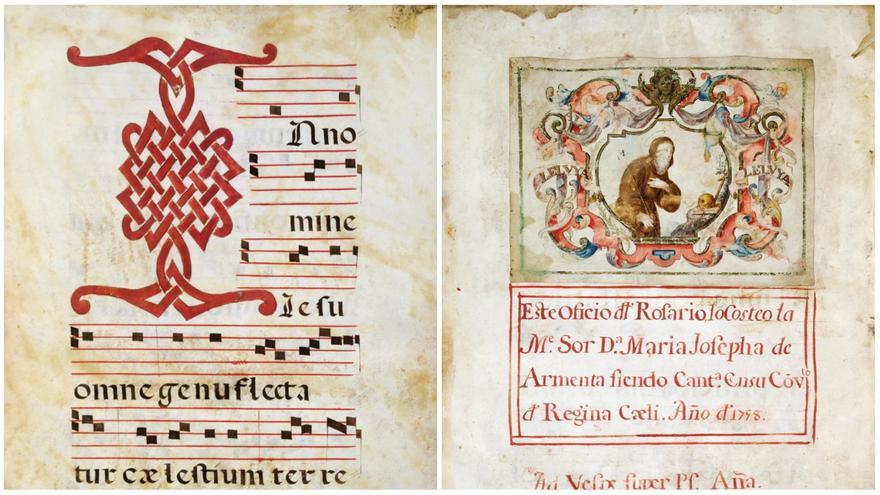 I Nno
mine
Iesu
omne genuflecta
tur cælestium terre
LELVYA LELVYA
Este Oficio dl Rosario lo Costeo la
Mᵉ. Sor Dᵃ. Maria Josepha de
Armenta siendo Cantᵃ. En su Cõvᵗᵒ
dl Regina Cæli. Año d
Ad Vesp. super Ps. Aña.